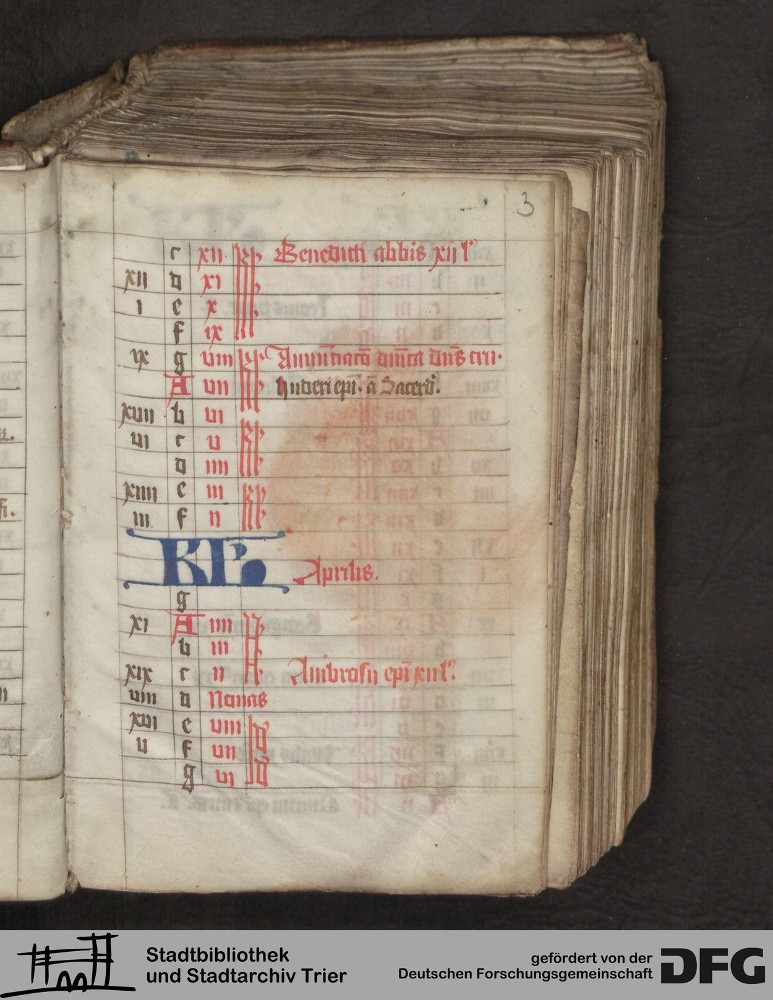 3
c xii kl Benedicti abbis xii l
xii d xi kl
i e x kl
f ix kl
ix g viii kl Annunciacō dn̄ica
A vii kl
xvii b vi kl
vi c v kl
d iiii kl
xiiii e iii kl
iii f ii kl
KL Aprilis.
g
xi A iiii N
b iii N
xix c ii N Ambrosii epi xii l
viii d Nonas
xvi e viii Id
v f vii Id
g vi Id
Stadtbibliothek
und Stadtarchiv Trier
gefördert von der
Deutschen Forschungsgemeinschaft
DFG